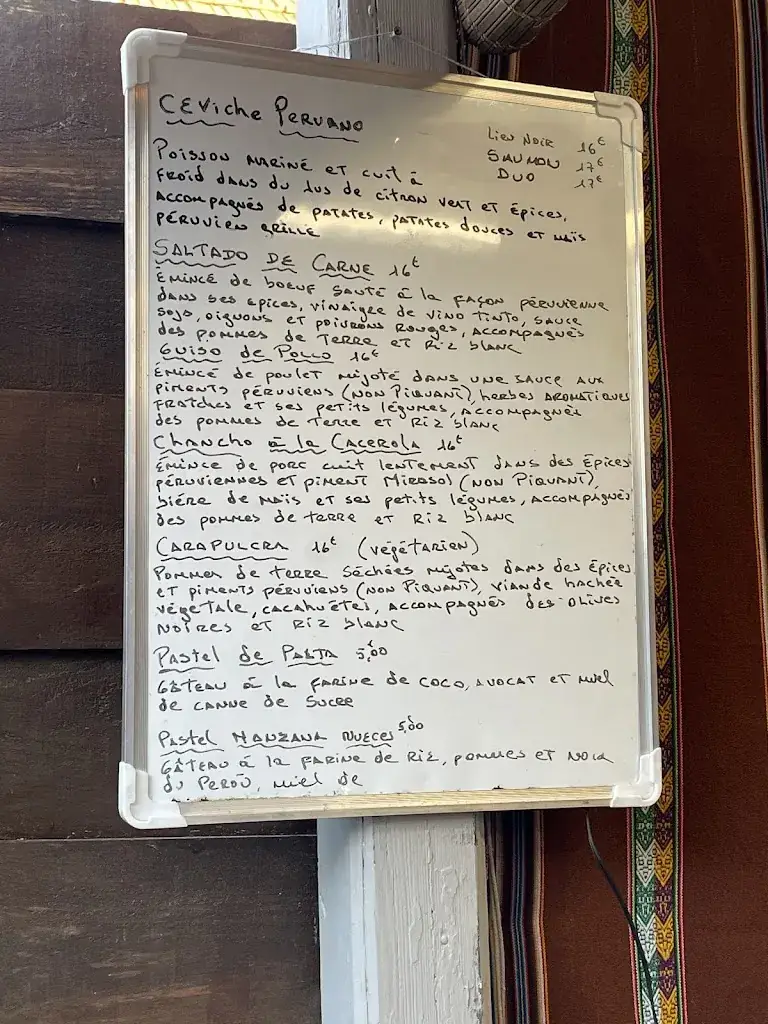 CEViche PERUANO
LIEU NOIR 16€
SAUMON 17€
DUO 17€
POISSON MARINÉ ET CUIT À
FROID DANS DU JUS DE CITRON VERT ET ÉPICES,
ACCOMPAGNÉS DE PATATES, PATATES DOUCES ET MAÏS
PÉRUVIEN GRILLÉ
SALTADO DE CARNE 16€
ÉMINCÉ DE BOEUF SAUTÉ À LA FAÇON PÉRUVIENNE
DANS SES ÉPICES, VINAIGRE DE VINO TINTO, SAUCE
SOJA, OIGNONS ET POIVRONS ROUGES, ACCOMPAGNÉS
DES POMMES DE TERRE ET RIZ BLANC
GUISO DE POLLO 16€
ÉMINCÉ DE POULET MIJOTÉ DANS UNE SAUCE AUX
PIMENTS PÉRUVIENS (NON PIQUANT), HERBES AROMATIQUES
FRAÎCHES ET SES PETITS LÉGUMES, ACCOMPAGNÉS
DES POMMES DE TERRE ET RIZ BLANC
CHANCHO À LA CACEROLA 16€
ÉMINCE DE PORC CUIT LENTEMENT DANS DES ÉPICES
PÉRUVIENNES ET PIMENT MIRASOL (NON PIQUANT),
BIÉRE DE MAÏS ET SES PETITS LÉGUMES, ACCOMPAGNÉS
DES POMMES DE TERRE ET RIZ BLANC
CARAPULCRA 16€ (VÉGÉTARIEN)
POMMES DE TERRE SÉCHÉES MIJOTES DANS DES ÉPICES
ET PIMENTS PÉRUVIENS (NON PIQUANT), VIANDE HACHÉE
VÉGÉTALE, CACAHUÉTES, ACCOMPAGNÉS DES OLIVES
NOIRES ET RIZ BLANC
PASTEL DE PASTA 5,00
GÂTEAU À LA FARINE DE COCO, AVOCAT ET MIEL
DE CANNE DE SUCRE
PASTEL MANZANA NUECES 5,00
GÂTEAU À LA FARINE DE RIZ, POMMES ET NOIX
DU PEROU, MIEL DE